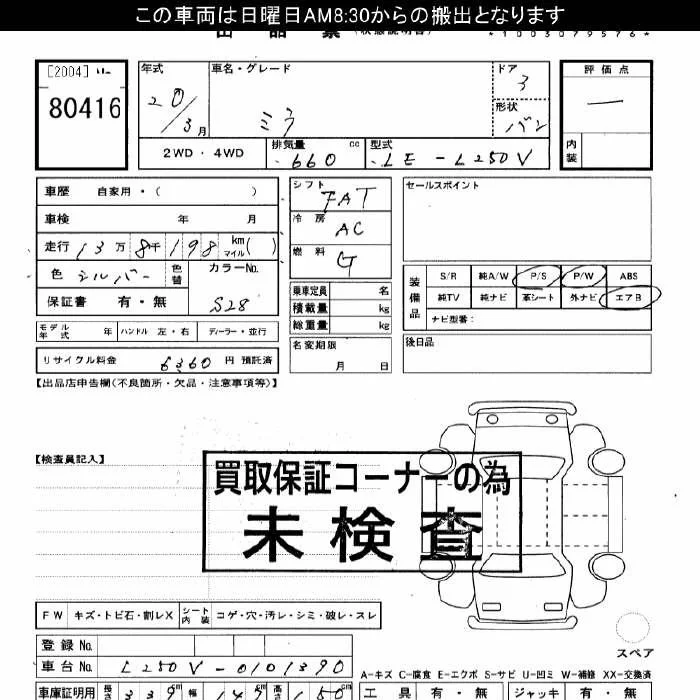 この車両は日曜日AM8:30からの搬出となります
出品票 (状態説明書) *1003079576*
[2004]
80416
年式 20/3月
車名・グレード ミラ
ドア 3
形状 バン
評価点 —
内装
2WD・4WD
排気量 660 cc
型式 LE-L250V
車歴 自家用・( )
車検 年 月
走行 13万8千198 km マイル ( )
色 シルバー 色替 カラーNo. S28
保証書 有・無
モデル年式 年 ハンドル 左・右 ディーラー・並行
リサイクル料金 6360 円 預託済
シフト FAT
冷房 AC
燃料 G
乗車定員 名
積載量 kg
総重量 kg
名変期限 月 日
セールスポイント
装備品
S/R 純A/W P/S P/W ABS
純TV 純ナビ 革シート 外ナビ エアB
ナビ型番:
後日品
【出品店申告欄(不良箇所・欠品・注意事項等)】
【検査員記入】
買取保証コーナーの為
未検査
FW キズ・トビ石・割レX シート内装 コゲ・穴・汚レ・シミ・破レ・スレ
スペア
登録No.
車台No. L250V-0101390
A-キズ C-腐食 E-エクボ S-サビ U-凹ミ W-補修 XX-交換済
車庫証明用 長さ 339cm 幅 147cm 高さ 150cm
工具 有・無 ジャッキ 有・無